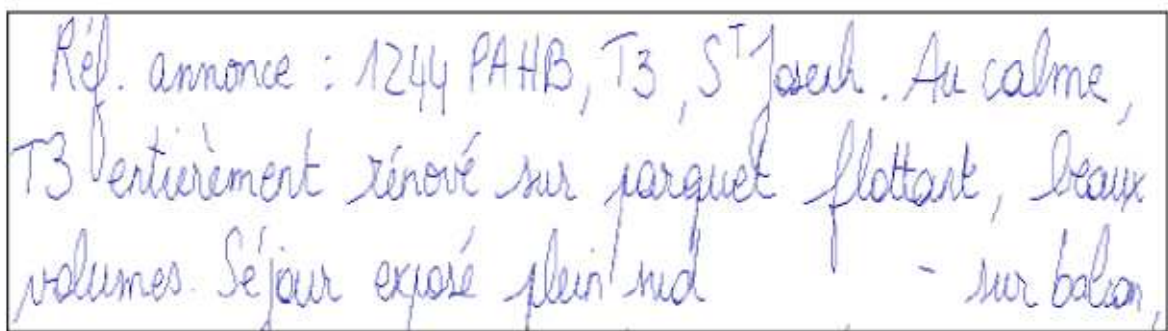 Réf. annonce : 1244 PAHB, T3, St Joseph. Au calme,
T3 entièrement rénové sur parquet flottant, beaux
volumes. Séjour exposé plein sud - sur balcon,